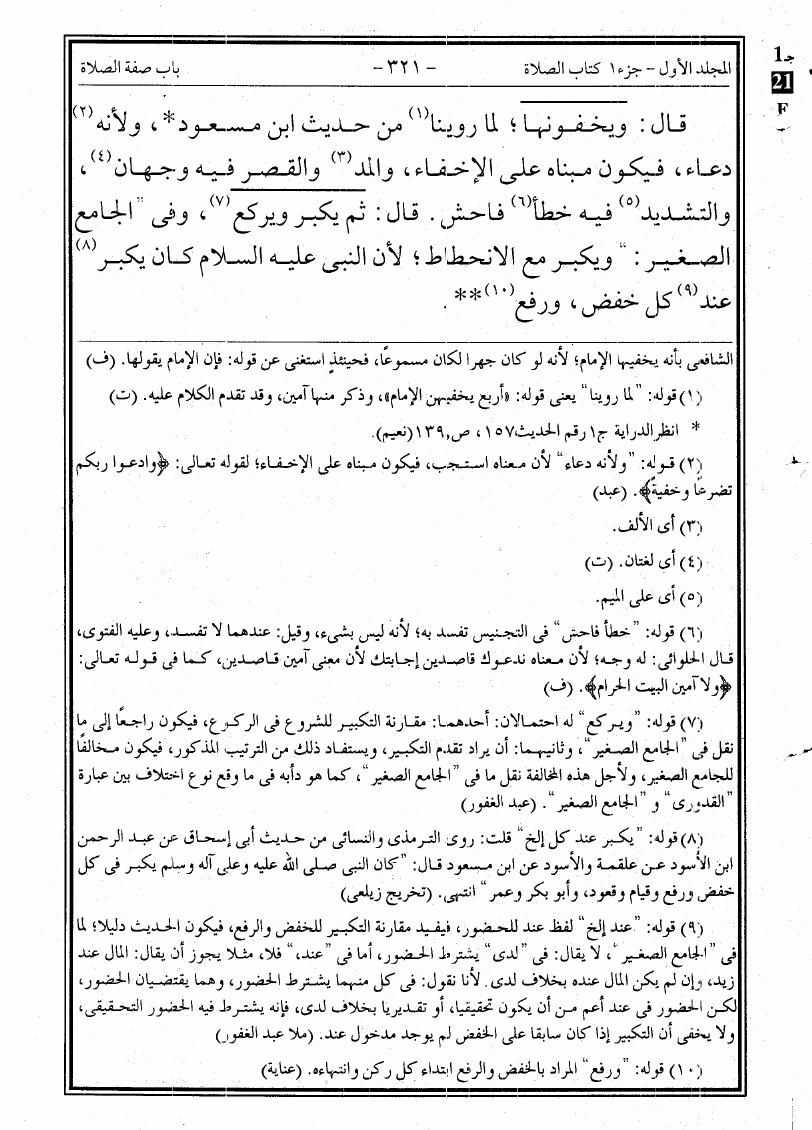 المجلد الأول – جزء ١ كتاب الصلاة - ٣٢١ - باب صفة الصلاة
جـ1
21
F
قال: ويخفونها؛ لما روينا(١) من حديث ابن مسعود*، ولأنه(٢)
دعاء، فيكون مبناه على الإخفاء، والمد(٣) والقصر فيه وجهان(٤)،
والتشديد(٥) فيه خطأ(٦) فاحش. قال: ثم يكبر ويركع(٧)، وفى "الجامع
الصغير: "ويكبر مع الانحطاط؛ لأن النبى عليه السلام كان يكبر(٨)
عند(٩) كل خفض، ورفع(١٠)**.
الشافعى بأنه يخفيها الإمام؛ لأنه لو كان جهرا لكان مسموعًا، فحينئذٍ استغنى عن قوله: فإن الإمام يقولها. (ف)
(١) قوله: "لما روينا" يعنى قوله: «أربع يخفيهن الإمام»، وذكر منها آمين، وقد تقدم الكلام عليه. (ت)
* انظر الدراية ج١ رقم الحديث١٥٧، ص١٣٩,(نعيم).
(٢) قوله: "ولأنه دعاء" لأن معناه استجب، فيكون مبناه على الإخفاء؛ لقوله تعالى: ﴿وادعوا ربكم
تضرعًا وخفيةً﴾. (عبد)
(٣) أى الألف.
(٤) أى لغتان. (ت)
(٥) أى على الميم.
(٦) قوله: "خطأ فاحش" فى التجنيس تفسد به؛ لأنه ليس بشىء، وقيل: عندهما لا تفسد، وعليه الفتوى،
قال الحلوائى: له وجه؛ لأن معناه ندعوك قاصدين إجابتك لأن معنى آمين قاصدين، كما فى قوله تعالى:
﴿ولا آمين البيت الحرام﴾. (ف)
(٧) قوله: "ويركع" له احتمالان: أحدهما: مقارنة التكبير للشروع فى الركوع، فيكون راجعًا إلى ما
نقل فى "الجامع الصغير"، وثانيهما: أن يراد تقدم التكبير، ويستفاد ذلك من الترتيب المذكور، فيكون مخالفًا
للجامع الصغير، ولأجل هذه المخالفة نقل ما فى "الجامع الصغير"، كما هو دأبه فى ما وقع نوع اختلاف بين عبارة
"القدورى" و "الجامع الصغير". (عبد الغفور)
(٨) قوله: "يكبر عند كل إلخ" قلت: روى الترمذى والنسائى من حديث أبى إسحاق عن عبد الرحمن
ابن الأسود عن علقمة والأسود عن ابن مسعود قال: "كان النبى صلى الله عليه وعلى آله وسلم يكبر فى كل
خفض ورفع وقيام وقعود، وأبو بكر وعمر" انتهى. (تخريج زيلعى)
(٩) قوله: "عند إلخ" لفظ عند للحضور، فيفيد مقارنة التكبير للخفض والرفع، فيكون الحديث دليلا؛ لما
فى "الجامع الصغير"، لا يقال: فى "لدى" يشترط الحضور، أما فى "عند،" فلا، مثلا يجوز أن يقال: المال عند
زيد، وإن لم يكن المال عنده بخلاف لدى. لأنا نقول: فى كل منهما يشترط الحضور، وهما يقتضيان الحضور،
لكن الحضور فى عند أعم من أن يكون تحقيقيا، أو تقديريا بخلاف لدى، فإنه يشترط فيه الحضور التحقيقى،
ولا يخفى أن التكبير إذا كان سابقا على الخفض لم يوجد مدخول عند. (ملا عبد الغفور)
(١٠) قوله: "ورفع" المراد بالخفض والرفع ابتداء كل ركن وانتهاءه. (عناية)